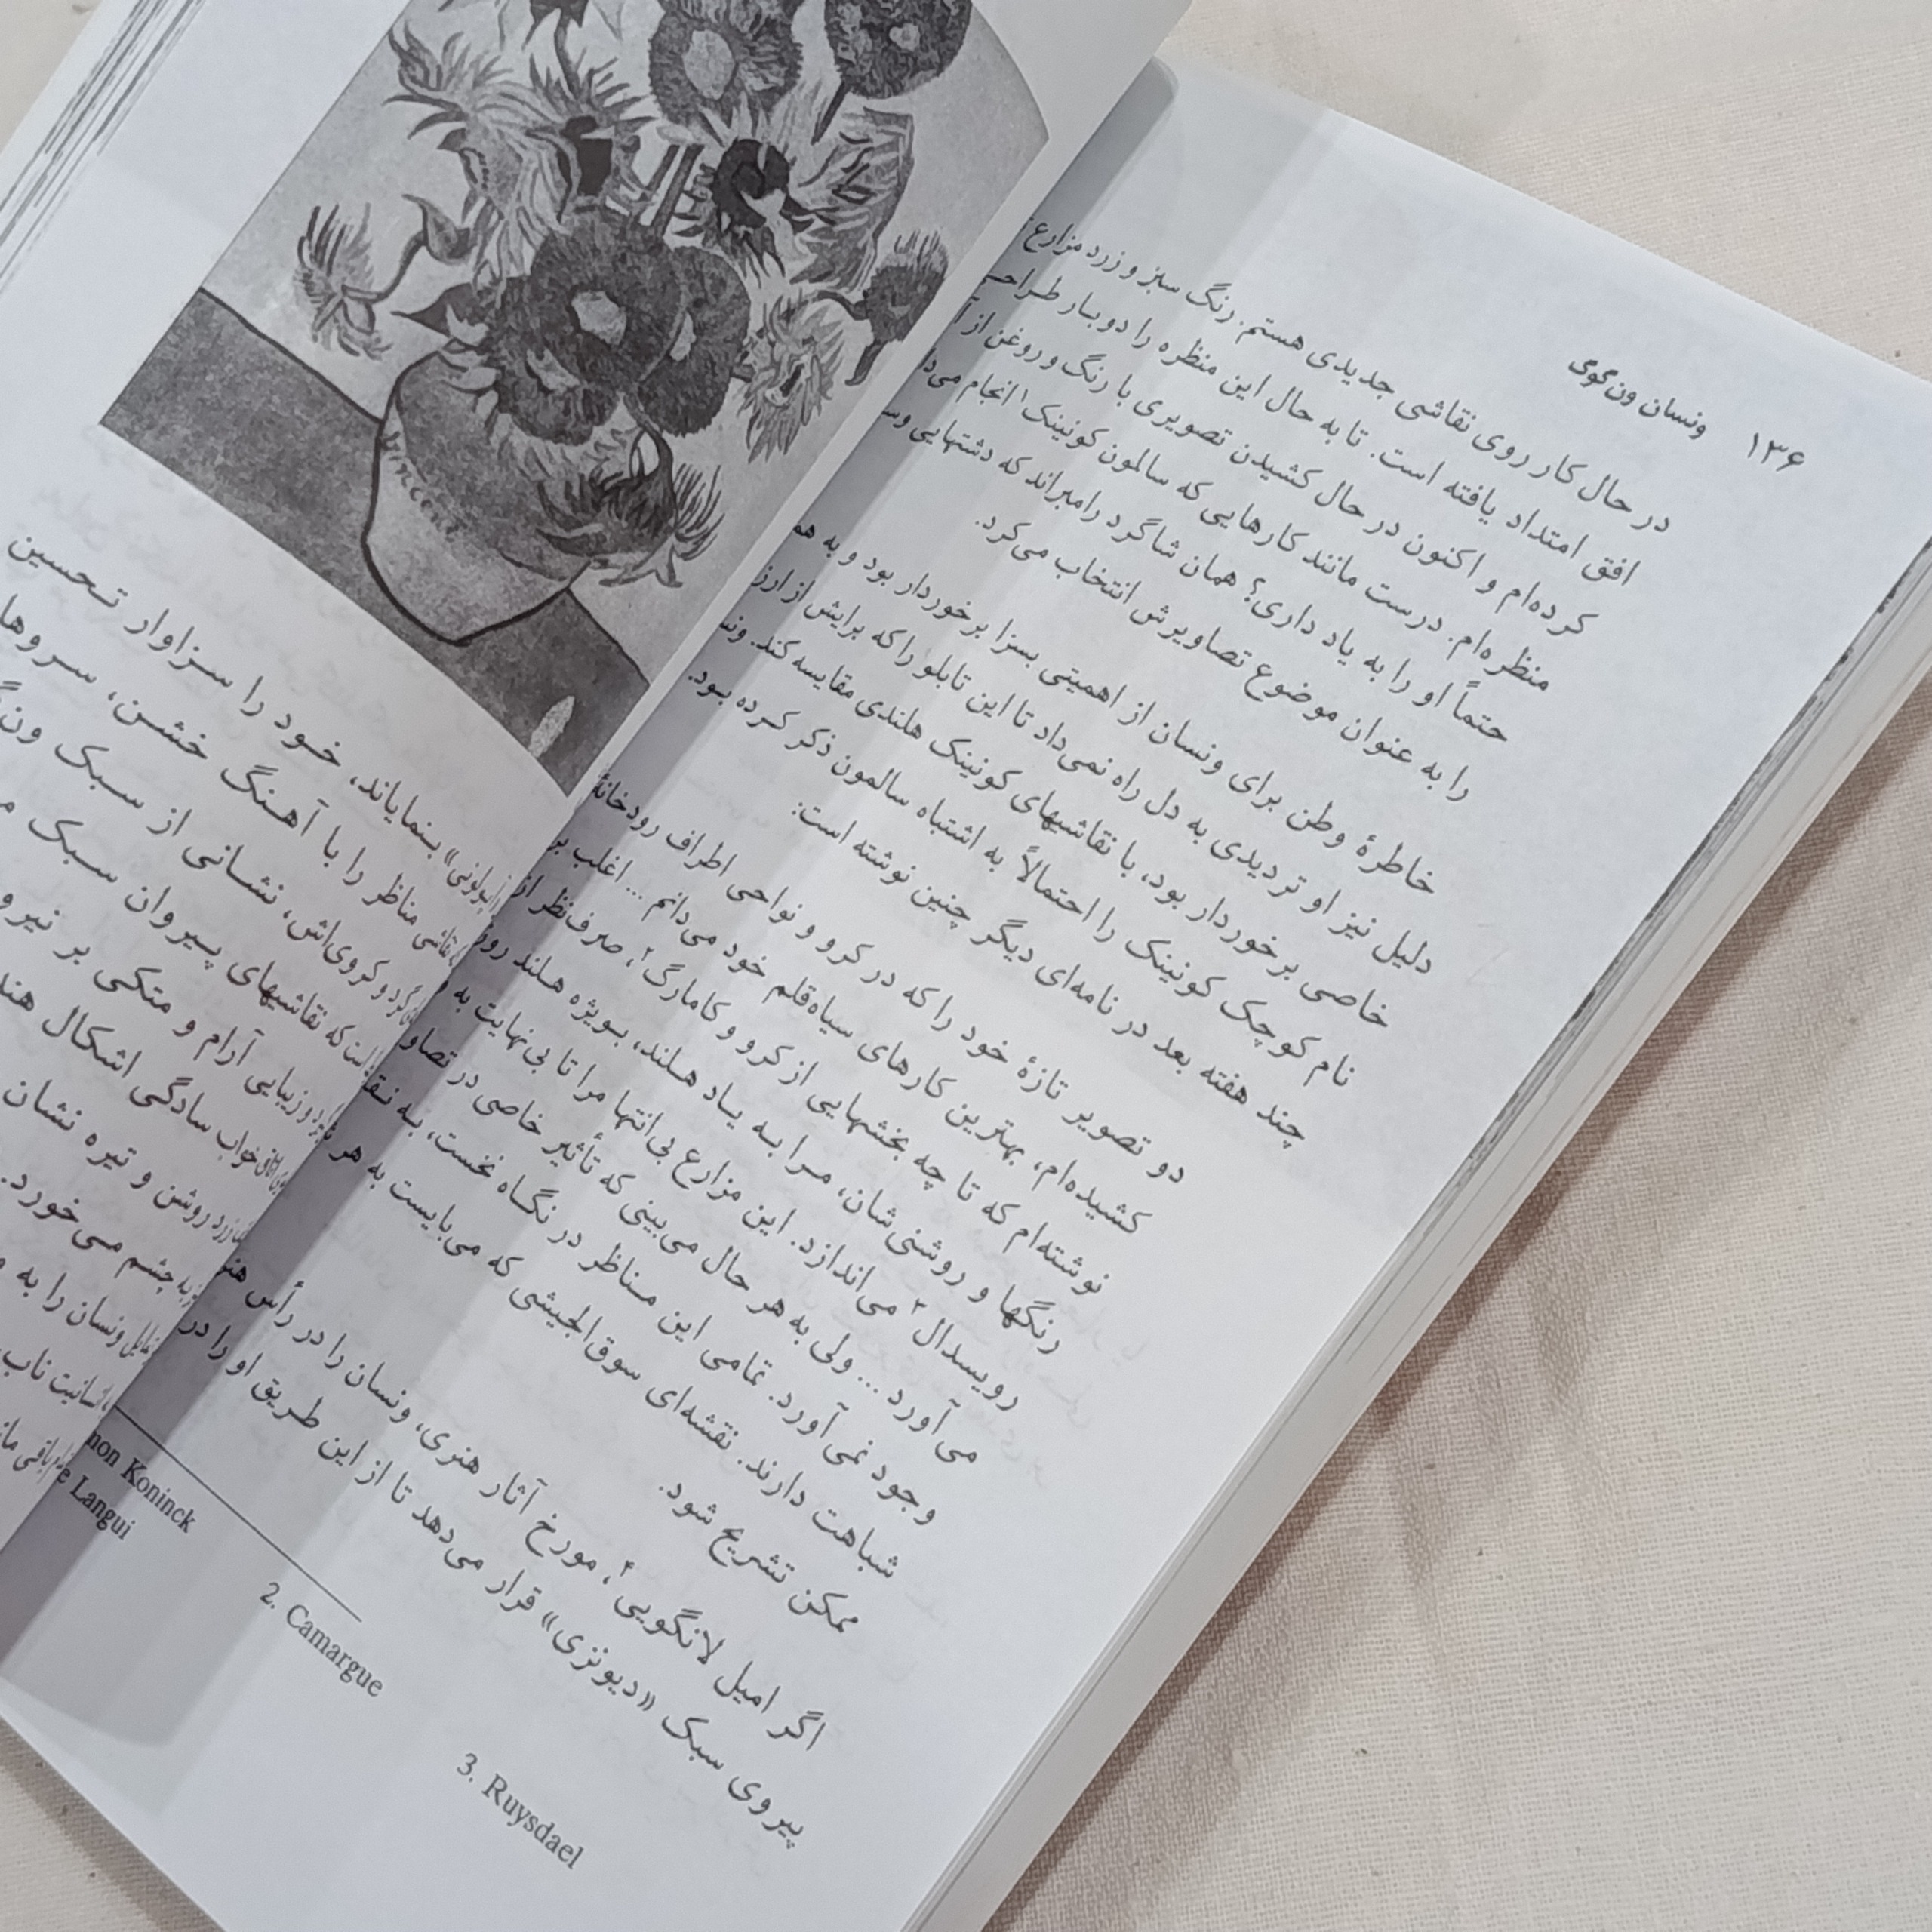 ۱۳۶ ونسان ون‌گوگ
در حال کار روی نقاشی جدیدی هستم. رنگ سبز و زرد مزارع
افق امتداد یافته است. تا به حال این منظره را دوبار طراحی
کرده‌ام و اکنون در حال کشیدن تصویری با رنگ و روغن از
منظره‌ام. درست مانند کارهایی که سالمون کونینک۱ انجام می‌دا
حتماً او را به یاد داری؟ همان شاگرد رامبراند که دشتهایی وس
را به عنوان موضوع تصاویرش انتخاب می‌کرد.
خاطرهٔ وطن برای ونسان از اهمیتی بسزا برخوردار بود و به هم
دلیل نیز او تردیدی به دل راه نمی‌داد تا این تابلو را که برایش از ارز
خاصی برخوردار بود، با نقاشیهای کونینک هلندی مقایسه کند. ونس
نام کوچک کونینک را احتمالاً به اشتباه سالمون ذکر کرده بود.
چند هفته بعد در نامه‌ای دیگر چنین نوشته است:
دو تصویر تازهٔ خود را که در کرو و نواحی اطراف رودخانهٔ
کشیده‌ام، بهترین کارهای سیاه‌قلم خود می‌دانم ... اغلب بر
نوشته‌ام که تا چه بخشهایی از کرو و کامارگ۲، صرف‌نظر از
رنگها و روشنی‌شان، مرا به یاد هلند، بویژه هلند روز
رویسدال۳ می‌اندازد. این مزارع بی‌انتها مرا تا بی‌نهایت به
می‌آورد ... ولی به هر حال می‌بینی که تأثیر خاصی در تصاو
وجود نمی‌آورد. تمامی این مناظر در نگاه نخست، به نقا
شباهت دارند. نقشه‌ای سوق‌الجیشی که می‌بایست به هر
ممکن تشریح شود.
اگر امیل لانگویی۴، مورخ آثار هنری، ونسان را در رأس هنر
پیروی سبک «دیونزی» قرار می‌دهد تا از این طریق او را در
non Koninck
2. Camargue
3. Ruysdael
e Langui
Vincent
بنمایاند، خود را سزاوار تحسین
نقاشی مناظر را با آهنگ خشن، سروها
گرد و کروی‌اش، نشانی از سبک ون
که نقاشیهای پیروان سبک
و زیبایی آرام و متکی بر نیرو
اتاق خواب سادگی اشکال هند
زرد روشن و تیره نشان
به چشم می‌خورد.
ونسان را به
انسانیت ناب
باقی ما